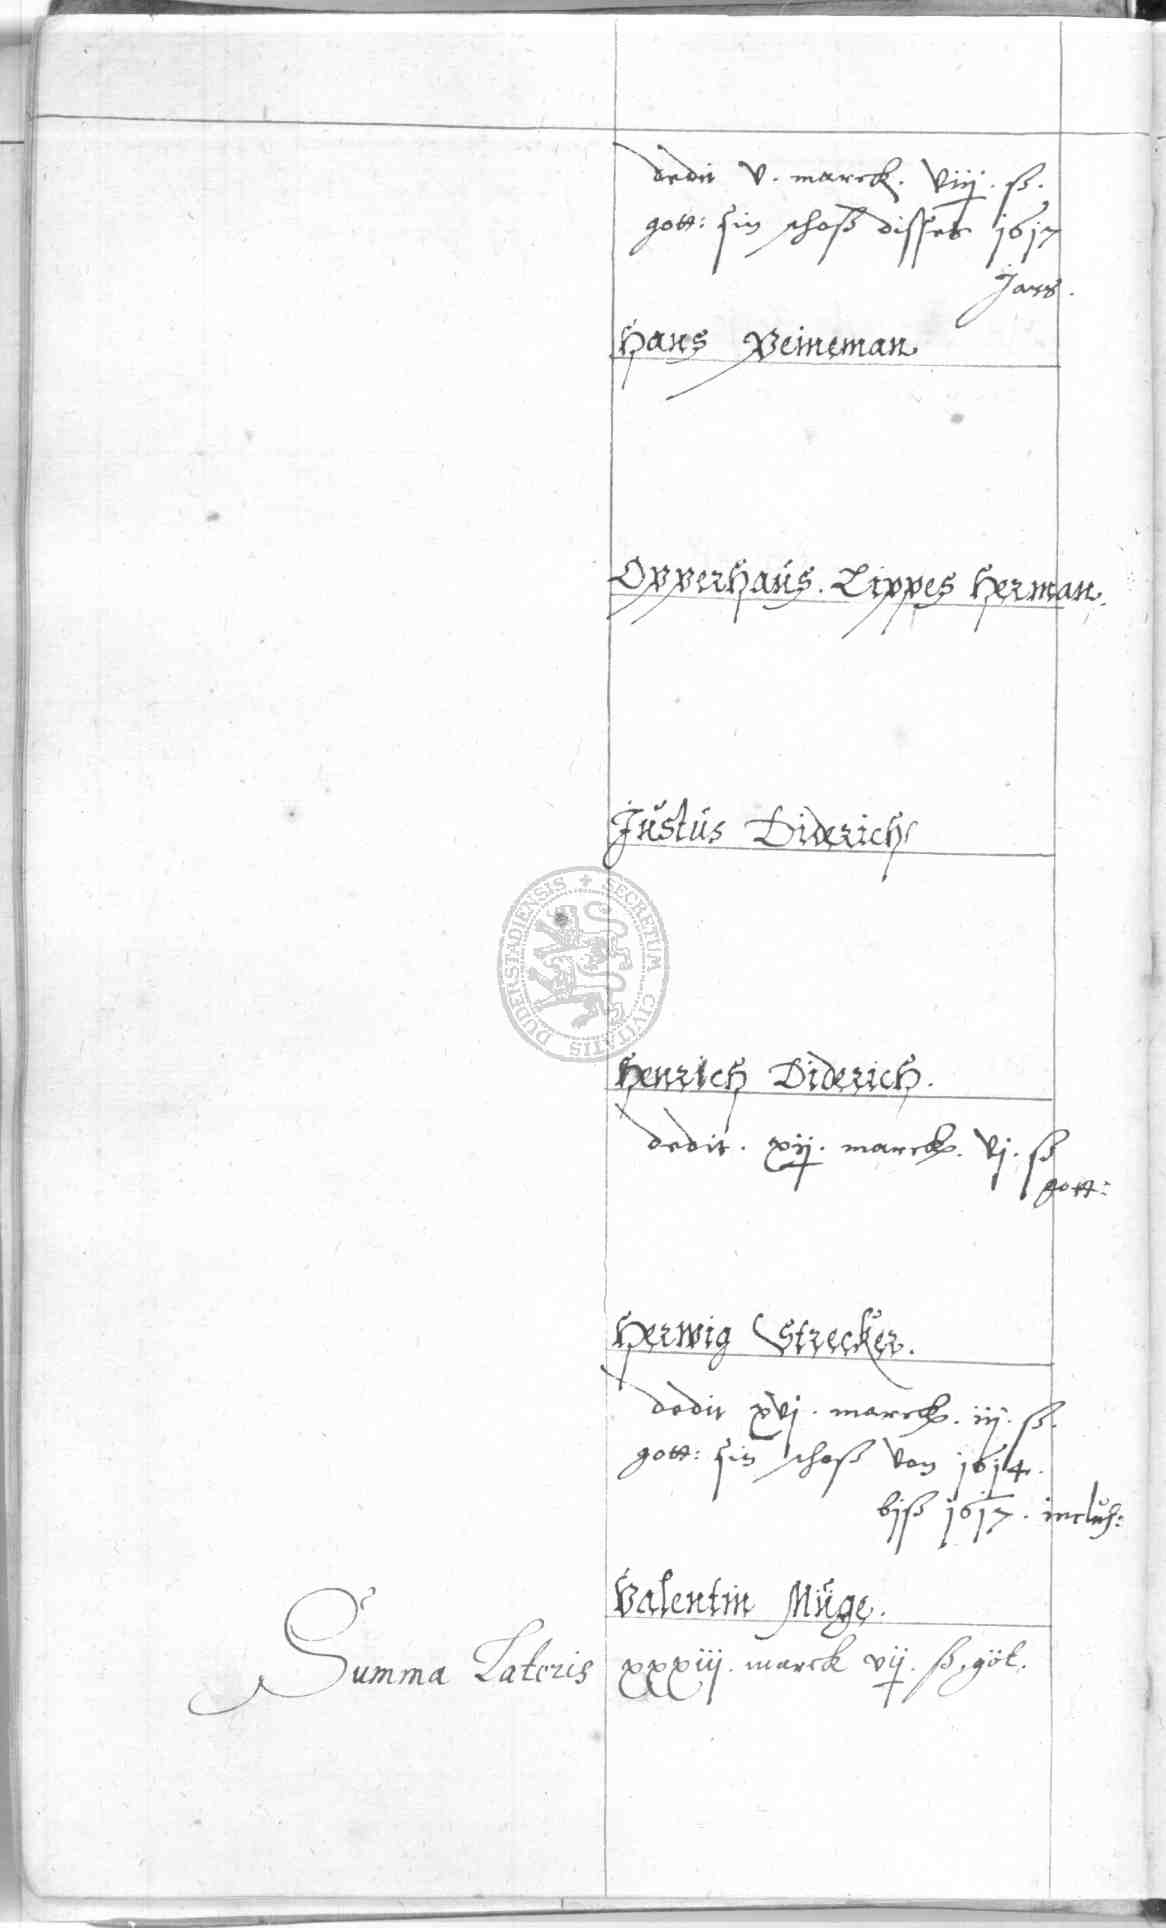 dedit v. marck. viij. ß.
gott: sin schoß disses 1617
Jars.
Hans Veineman
Opperhaus. Lippes Herman.
Justus Diderich
SECRETUM CIVITATIS DUDERSTADIENSIS
Henrich Diderich.
dedit. xij. marck. vj. ß
gott:
Herwig Strecker.
dedit xvj. marck. iij. ß.
gott: sin schoß von 1614.
biß 1617. inclus:
Valentin Müge.
Summa Lateris xxxiij. marck vij. ß. göt.